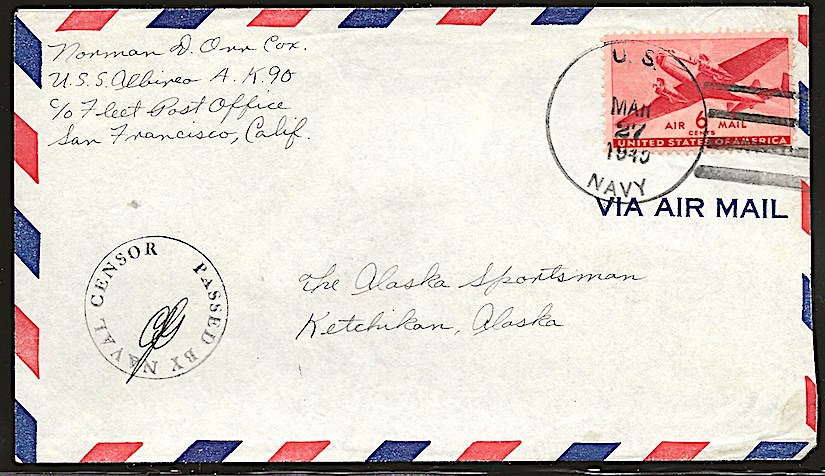 Norman D. Orr Cox.
U.S.S. Albireo A.K. 90
c/o Fleet Post Office
San Francisco, Calif.
U.S.
MAR
27
1945
NAVY
AIR 6 MAIL
CENTS
UNITED STATES OF AMERICA
VIA AIR MAIL
PASSED BY NAVAL CENSOR
The Alaska Sportsman
Ketchikan, Alaska